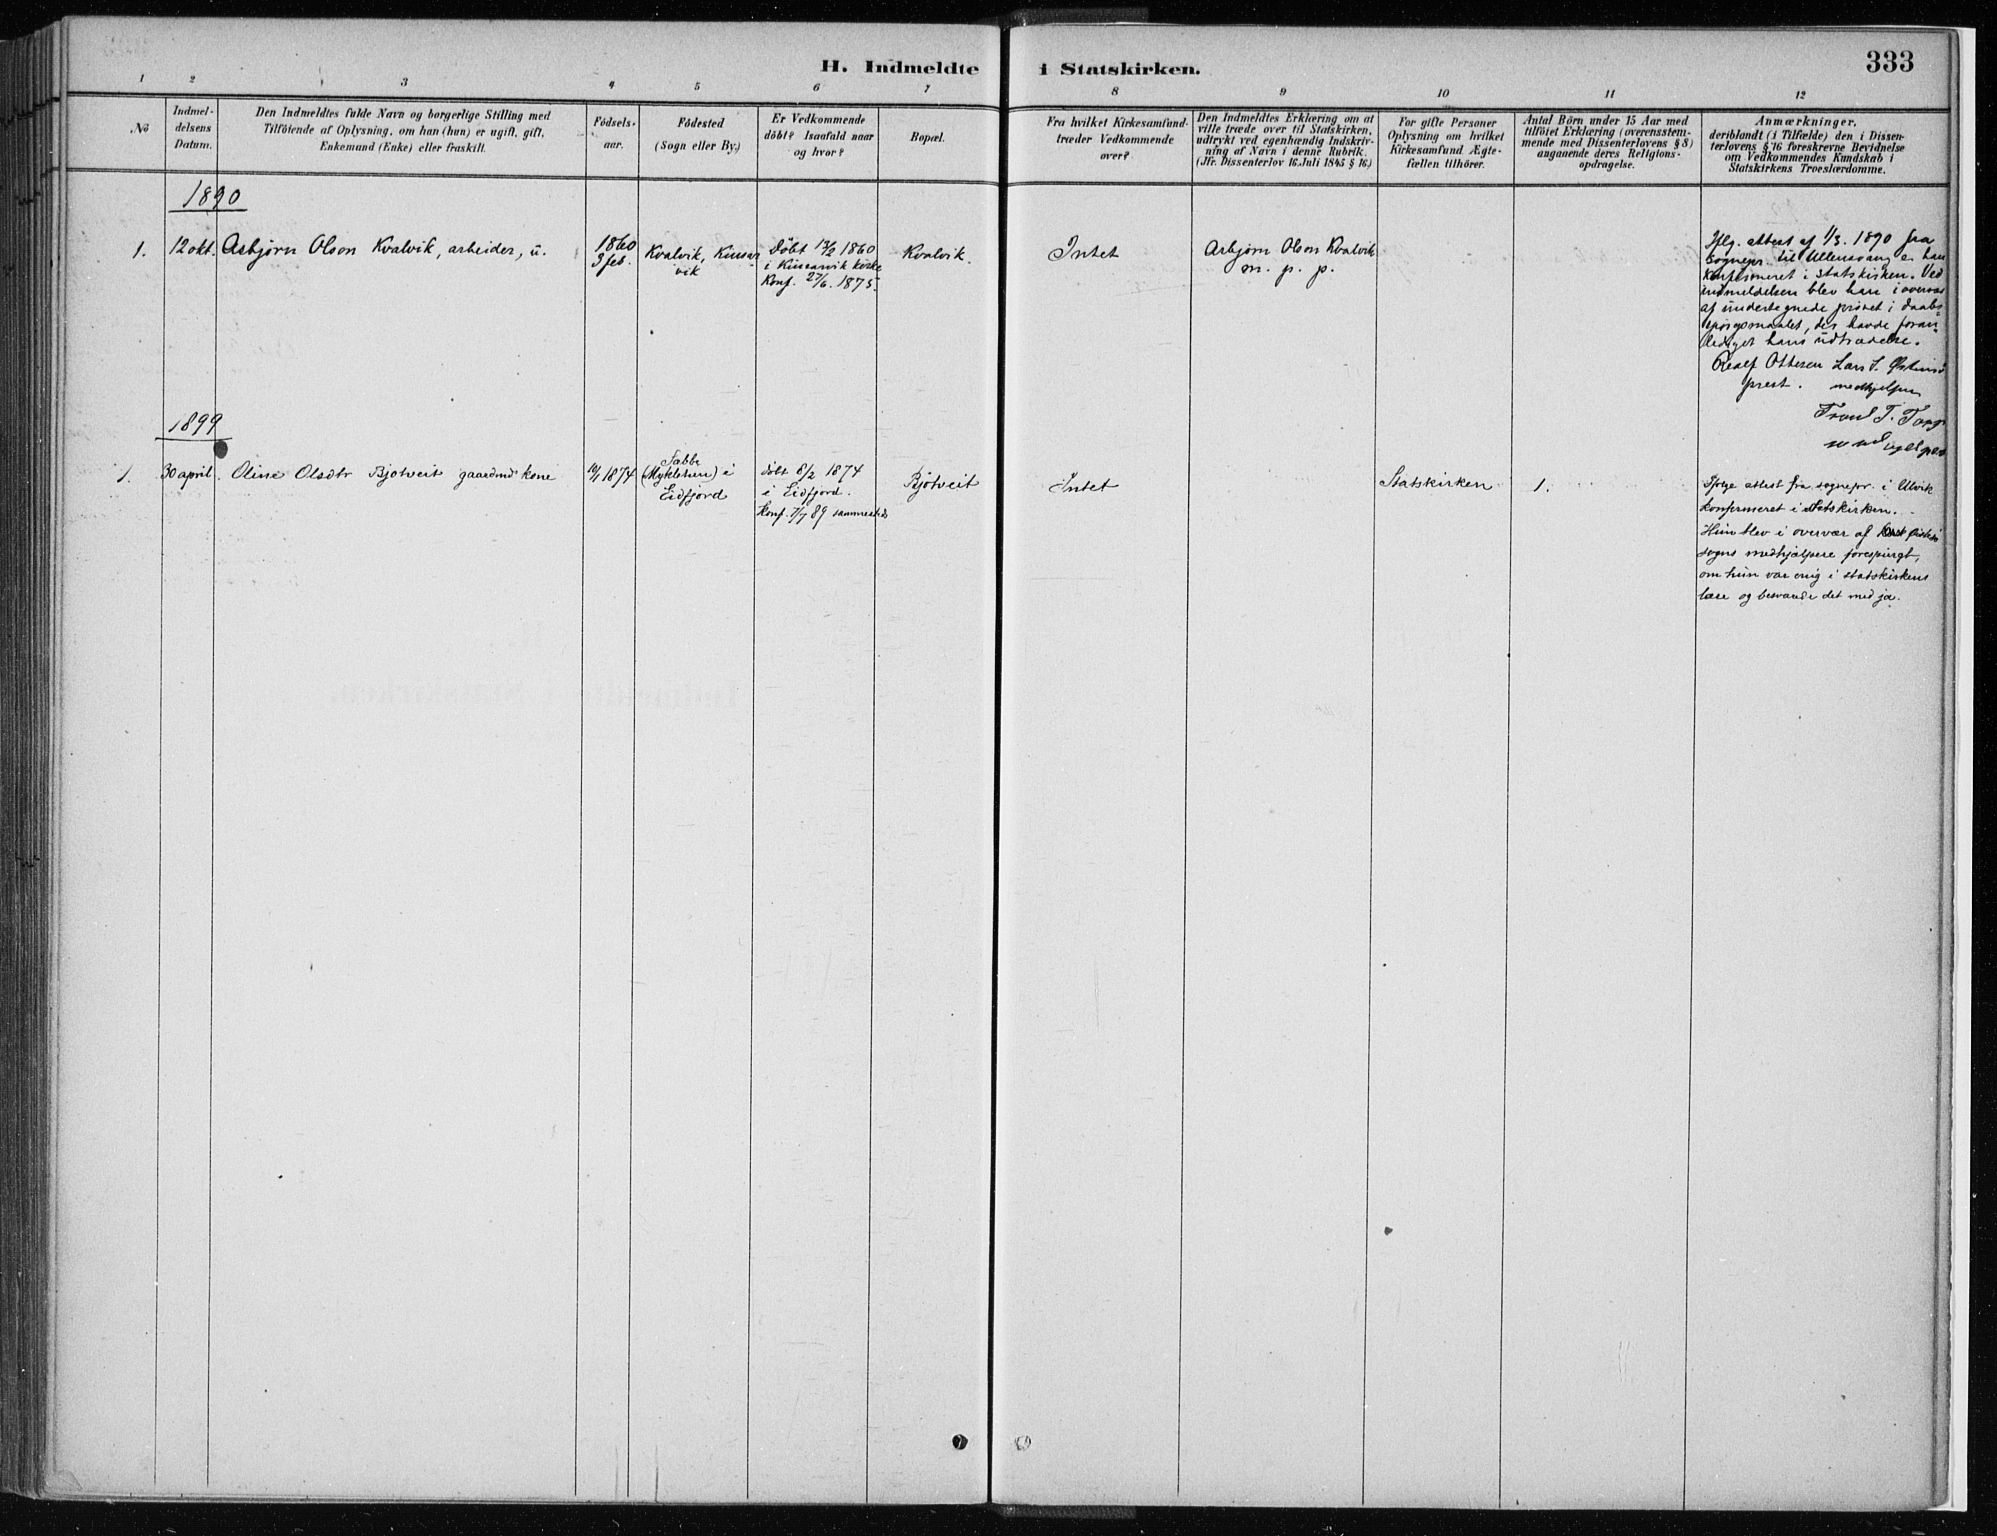 H. Indmeldte i Statskirken.
333
1 2 3 4 5 6 7 8 9 10 11 12
No
Indmel-
delsens
Datum.
Den Indmeldtes fulde Navn og borgerlige Stilling med
Tilföiende af Oplysning, om han (hun) er ugift, gift,
Enkemand (Enke) eller fraskilt.
Födsels-
aar.
Födested
(Sogn eller By.)
Er Vedkommende
döbt? Isaafald naar
og hvor?
Bopæl.
Fra hvilket Kirkesamfund
træder Vedkommende
over?
Den Indmeldtes Erklæring om at
ville træde over til Statskirken,
udtrykt ved egenhændig Indskriv-
ning af Navn i denne Rubrik.
(Jfr. Dissenterlov 16 Juli 1845 § 16.)
For gifte Personer
Oplysning om hvilket
Kirkesamfund Ægte-
fællen tilhörer.
Antal Börn under 15 Aar med
tilföiet Erklæring (overensstem-
mende med Dissenterlovens § 8)
angaaende deres Religions-
opdragelse.
Anmærkninger,
deriblandt (i Tilfælde) den i Dissen-
terlovens § 16 foreskrevne Bevidnelse
om Vedkommendes Kundskab i
Statskirkens Troeslærdomme.
1890
1.
12 okt.
Asbjørn Olson Kvalvik, arbeider, u.
1860
3 feb.
Kvalvik, Kinsar
vik
Døbt 12/2 1860
i Kinsarvik kirke
Konf. 27/6. 1875.
Kvalvik.
Intet
Asbjørn Olson Kvalvik
m. p. p.
Iflg. attest af 1/3. 1890 fra
sognepr. til Ullensvang er han
konfirmeret i statskirken. Ved
indmeldelsen blev han i overvær
af undertegnede prøvet i daabs-
spørgsmaalet, der havde foran-
lediget hans udtrædelse.
Ottesen Lars
prest. medhjelper
T.
1899
1.
30 april.
Oline Olsdtr Bjotveit gaardmd kone
10/1 1874
(Mykletun) i
Eidfjord
døbt 8/2 1874
i Eidfjord.
Konf. 7/7 89 sammesteds
Bjotveit
Intet
Statskirken
1.
Ifølge attest fra sognepr. i Ulvik
konfirmeret i statskirken.
Hun blev i overvær af
sogns medhjælpere forespurgt,
om hun var enig i statskirkens
lære og besvarede det med ja.